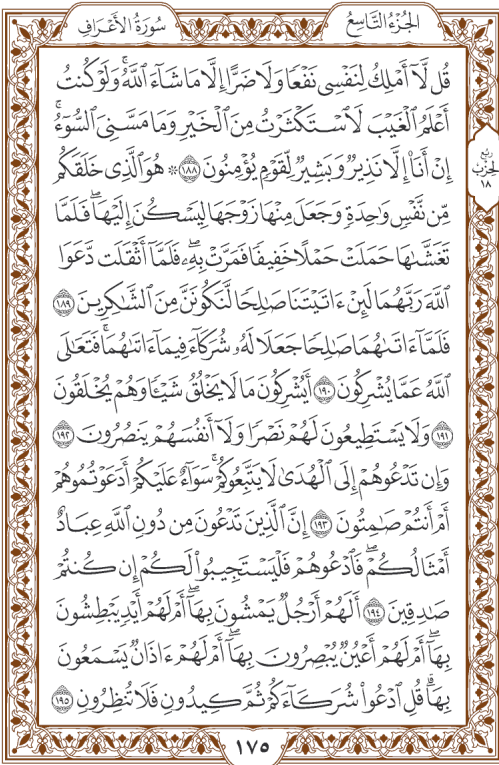 الجُزْءُ التَّاسِعُ
سُورَةُ الأَعْرَافِ
قُل لَّآ أَمْلِكُ لِنَفْسِى نَفْعًا وَلَا ضَرًّا إِلَّا مَا شَآءَ ٱللَّهُۚ وَلَوْ كُنتُ
أَعْلَمُ ٱلْغَيْبَ لَٱسْتَكْثَرْتُ مِنَ ٱلْخَيْرِ وَمَا مَسَّنِىَ ٱلسُّوٓءُۚ
إِنْ أَنَا۠ إِلَّا نَذِيرٌ وَبَشِيرٌ لِّقَوْمٍ يُؤْمِنُونَ ١٨٨ ۞ هُوَ ٱلَّذِى خَلَقَكُم
مِّن نَّفْسٍ وَٰحِدَةٍ وَجَعَلَ مِنْهَا زَوْجَهَا لِيَسْكُنَ إِلَيْهَاۖ فَلَمَّا
تَغَشَّىٰهَا حَمَلَتْ حَمْلًا خَفِيفًا فَمَرَّتْ بِهِۦۖ فَلَمَّآ أَثْقَلَت دَّعَوَا
ٱللَّهَ رَبَّهُمَا لَئِنْ ءَاتَيْتَنَا صَٰلِحًا لَّنَكُونَنَّ مِنَ ٱلشَّٰكِرِينَ ١٨٩
فَلَمَّآ ءَاتَىٰهُمَا صَٰلِحًا جَعَلَا لَهُۥ شُرَكَآءَ فِيمَآ ءَاتَىٰهُمَاۚ فَتَعَٰلَى
ٱللَّهُ عَمَّا يُشْرِكُونَ ١٩٠ أَيُشْرِكُونَ مَا لَا يَخْلُقُ شَيْـًٔا وَهُمْ يُخْلَقُونَ
١٩١ وَلَا يَسْتَطِيعُونَ لَهُمْ نَصْرًا وَلَآ أَنفُسَهُمْ يَنصُرُونَ ١٩٢
وَإِن تَدْعُوهُمْ إِلَى ٱلْهُدَىٰ لَا يَتَّبِعُوكُمْۚ سَوَآءٌ عَلَيْكُمْ أَدَعَوْتُمُوهُمْ
أَمْ أَنتُمْ صَٰمِتُونَ ١٩٣ إِنَّ ٱلَّذِينَ تَدْعُونَ مِن دُونِ ٱللَّهِ عِبَادٌ
أَمْثَالُكُمْۖ فَٱدْعُوهُمْ فَلْيَسْتَجِيبُوا۟ لَكُمْ إِن كُنتُمْ
صَٰدِقِينَ ١٩٤ أَلَهُمْ أَرْجُلٌ يَمْشُونَ بِهَآۖ أَمْ لَهُمْ أَيْدٍ يَبْطِشُونَ
بِهَآۖ أَمْ لَهُمْ أَعْيُنٌ يُبْصِرُونَ بِهَآۖ أَمْ لَهُمْ ءَاذَانٌ يَسْمَعُونَ
بِهَاۗ قُلِ ٱدْعُوا۟ شُرَكَآءَكُمْ ثُمَّ كِيدُونِ فَلَا تُنظِرُونِ ١٩٥
ربع
الحزب
١٨
١٧٥